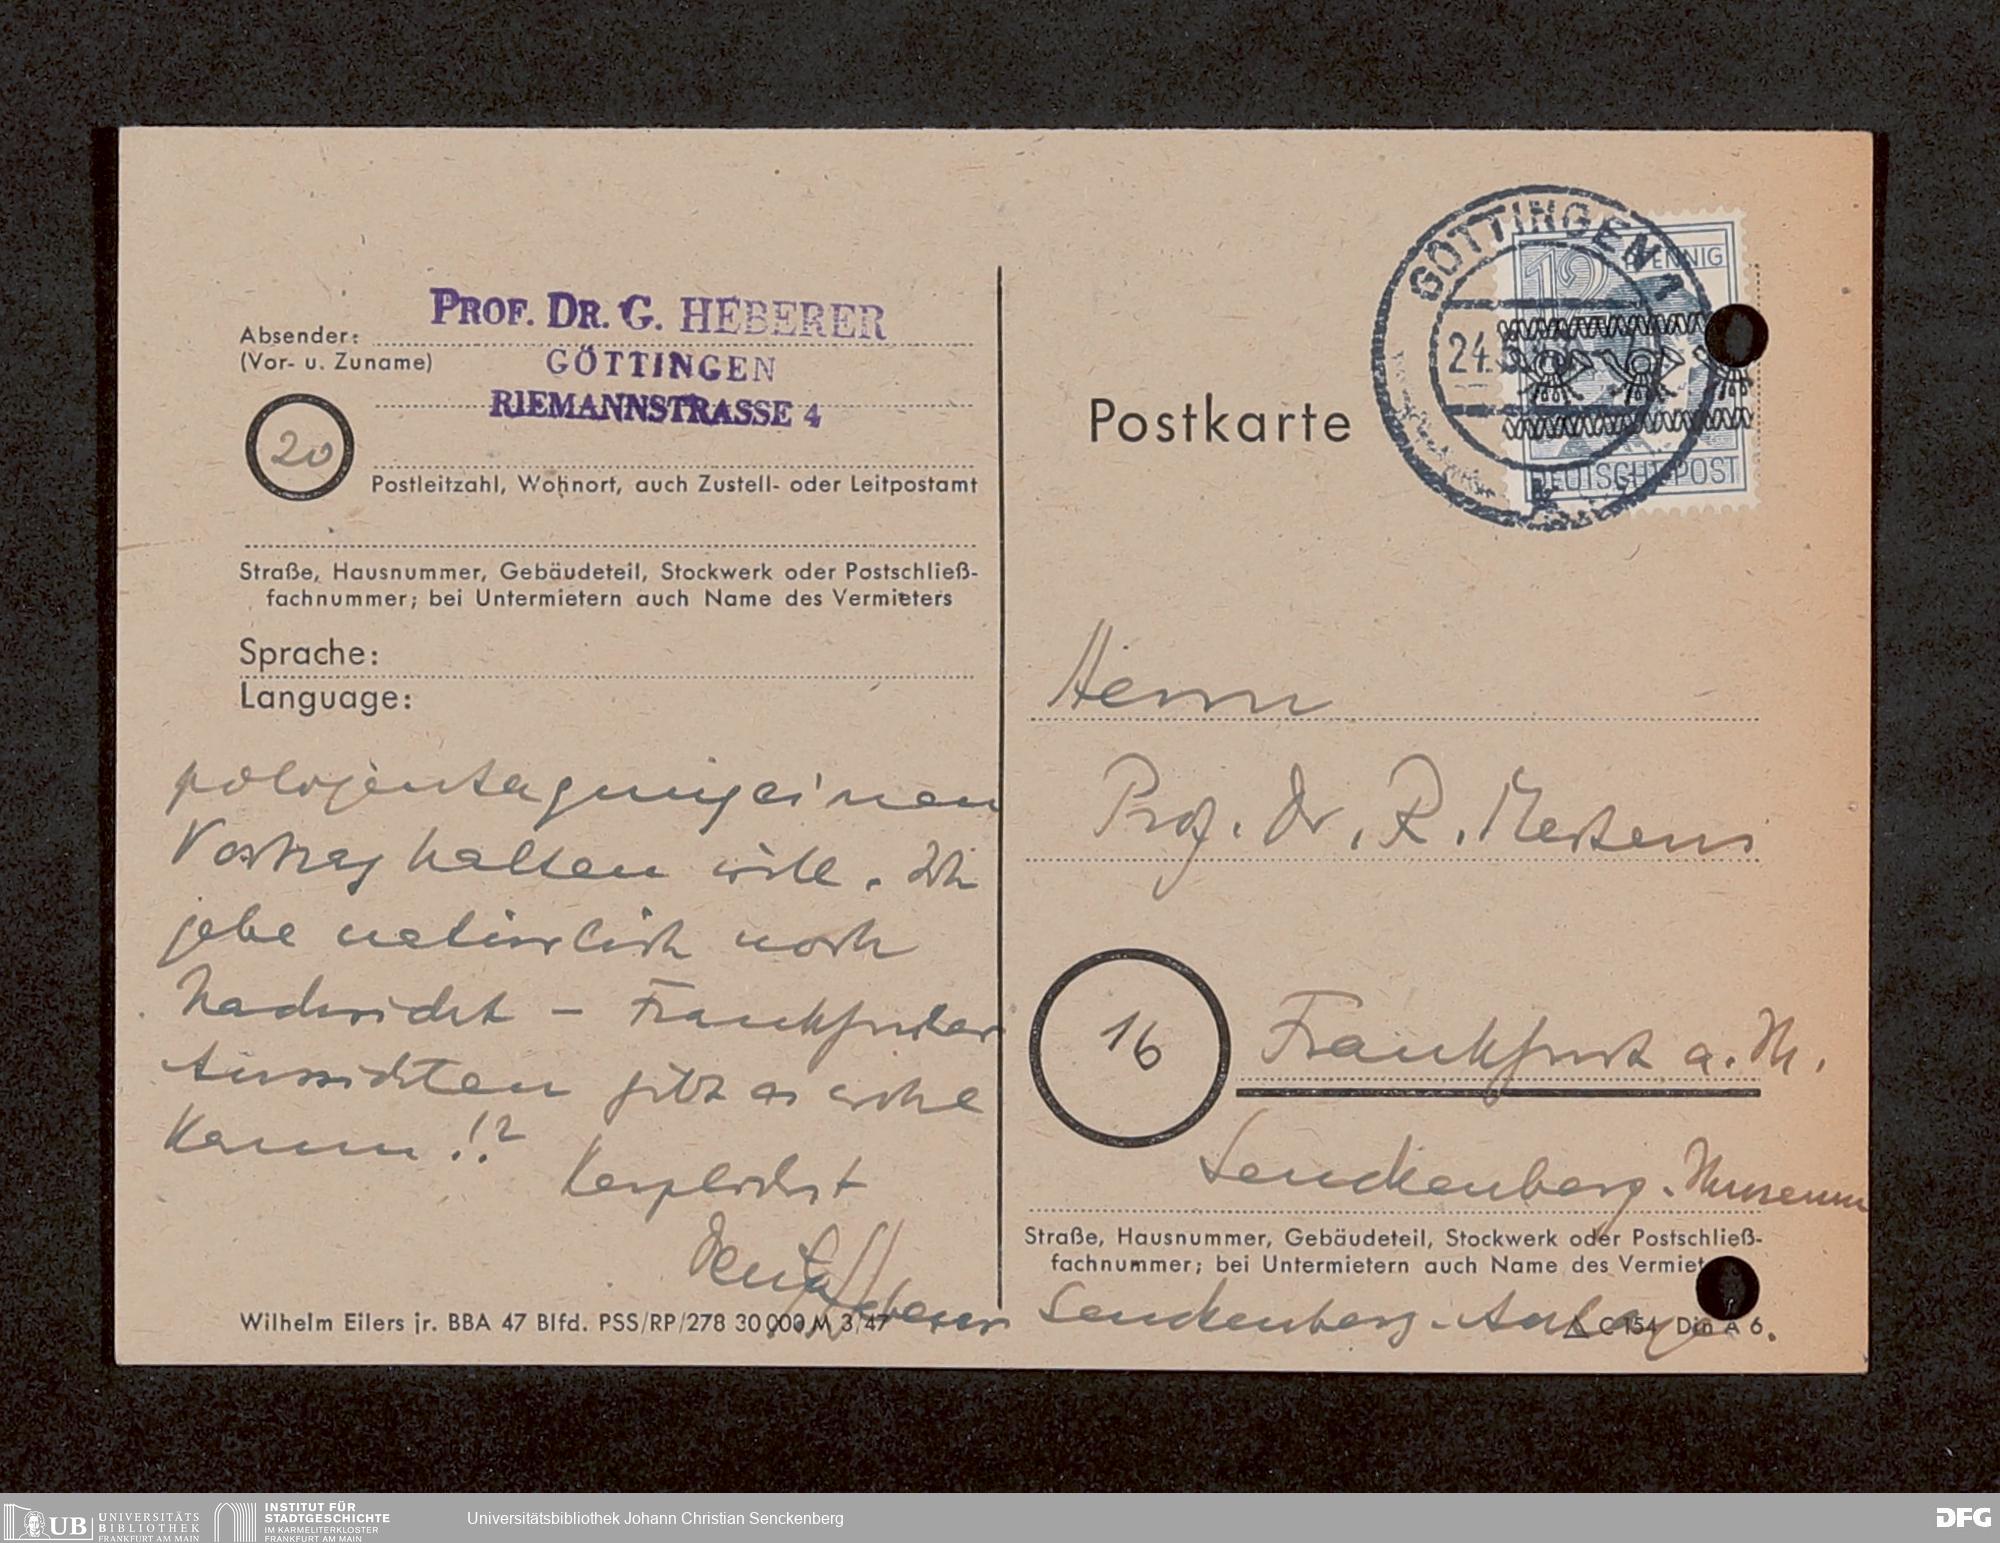 PROF. DR. G. HEBERER
GÖTTINGEN
RIEMANNSTRASSE 4
Absender:
(Vor- u. Zuname)
20
Postleitzahl, Wohnort, auch Zustell- oder Leitpostamt
Straße, Hausnummer, Gebäudeteil, Stockwerk oder Postschließ-
fachnummer; bei Untermietern auch Name des Vermieters
Sprache:
Language:
pologentagung einen
Vortrag halten will. Ich
gebe natürlich noch
Nachricht – Frankfurter
Aussichten gibt es wohl
kaum!?
Herzlichst
Heberer
Wilhelm Eilers jr. BBA 47 Blfd. PSS/RP/278 30 000 M 3/47
Postkarte
GÖTTINGEN 1
24.
12 PFENNIG
DEUTSCHE POST
Herrn
Prof. Dr. R. Mertens
16
Frankfurt a. M.
Senckenberg-Museum
Straße, Hausnummer, Gebäudeteil, Stockwerk oder Postschließ-
fachnummer; bei Untermietern auch Name des Vermiet
Senckenberg-Anlage
C 154 Din A 6.
UB UNIVERSITÄTS
BIBLIOTHEK
FRANKFURT AM MAIN
INSTITUT FÜR
STADTGESCHICHTE
IM KARMELITERKLOSTER
FRANKFURT AM MAIN
Universitätsbibliothek Johann Christian Senckenberg
DFG